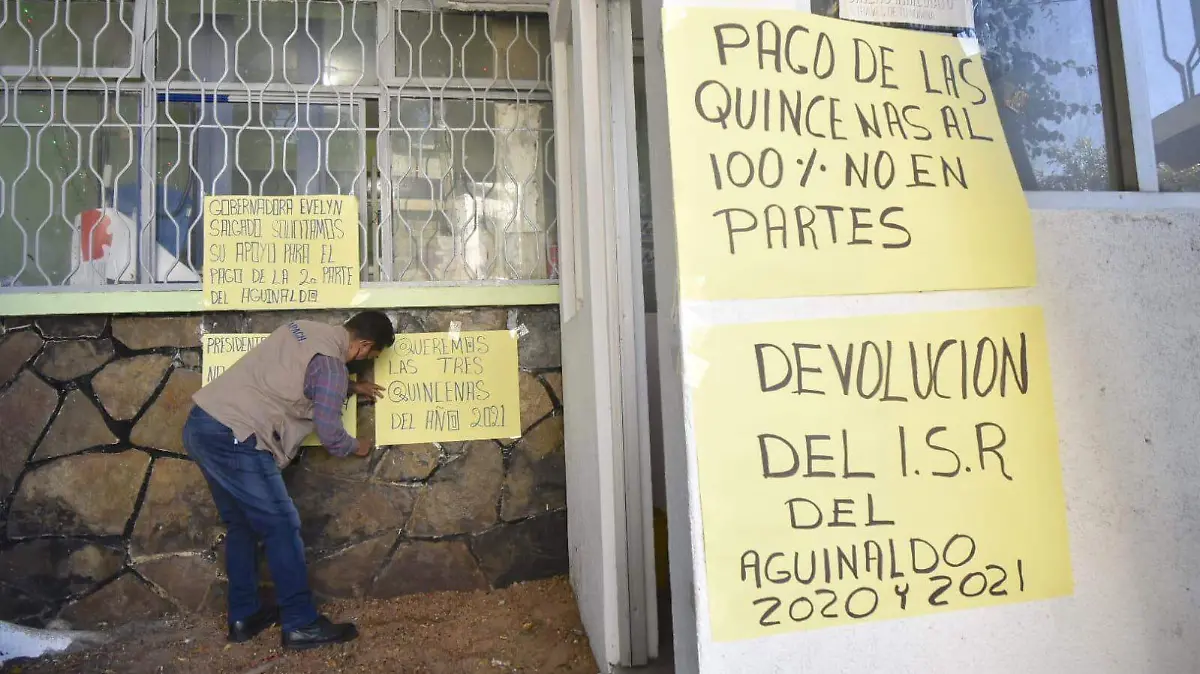 GOBERNADORA EVELYN
SALGADO SOLICITAMOS
SU APOYO PARA EL
PAGO DE LA 2a PARTE
DEL AGUINALDO
PRESIDENTE
QUEREMOS
LAS TRES
QUINCENAS
DEL AÑO 2021
PAGO DE LAS
QUINCENAS AL
100% NO EN
PARTES
DEVOLUCION
DEL I.S.R
DEL
AGUINALDO
2020 Y 2021